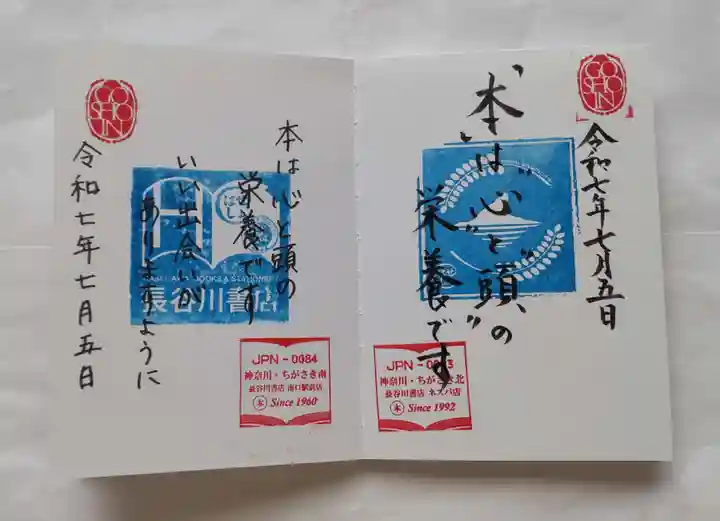 GO
SHO
IN
令和七年七月五日
"本"は
"心"と"頭"の
栄養です
JPN-0083
神奈川・ちがさき北
長谷川書店 ネスパ店
本 Since 1992
GO
SHO
IN
本は心と頭の
栄養です
いい出会いが
ありますように
令和七年七月五日
長谷川書店
JPN-0084
神奈川・ちがさき南
長谷川書店 南口駅前店
本 Since 1960